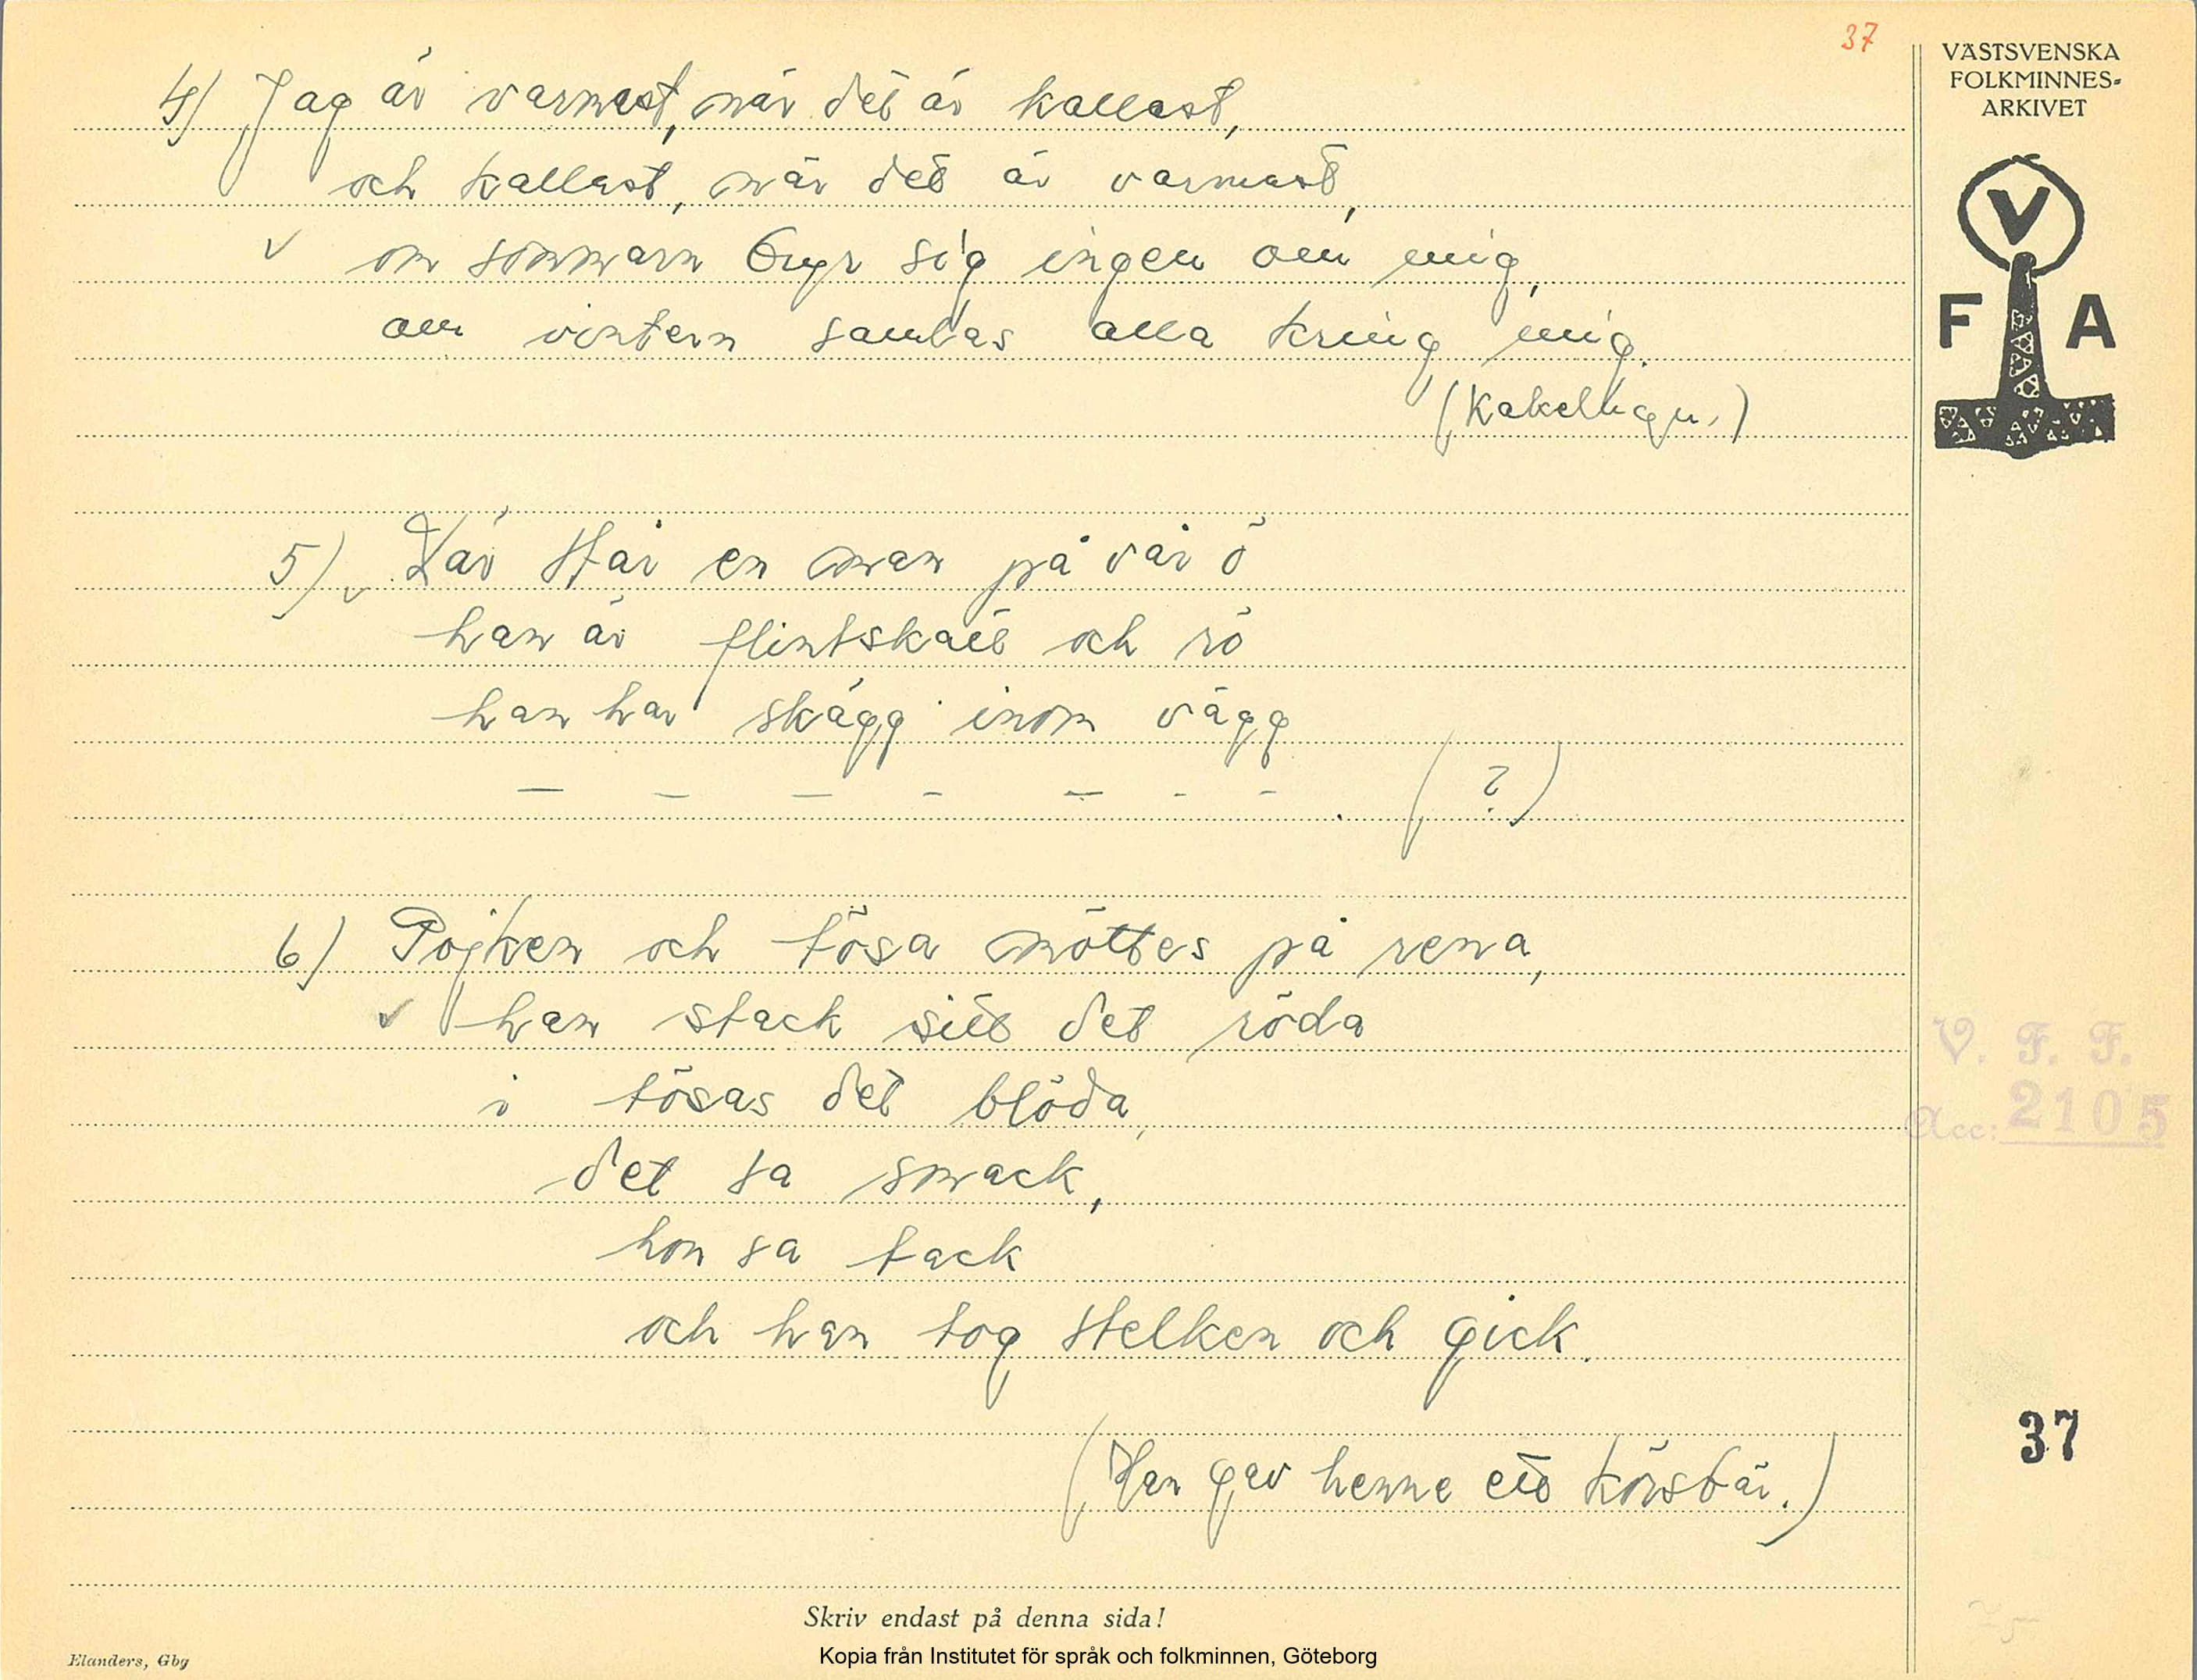 37
4) Jag är varmast, när det är kallast,
och kallast, när det är varmast,
v om sommarn bryr sig ingen om mig,
om vintern samlas alla kring mig.
(Kakelugn.)
5) v Där står en man på vår ö
han är flintskallt och rö
han har skägg inom vägg
— — — - — - - . ( ? )
6) Pojken och tösa möttes på rena,
v han stack sitt det röda
i tösas det blöda,
det sa smack,
hon sa tack
och han tog stelken och gick.
(Han gav henne ett körsbär.)
Skriv endast på denna sida!
Elanders, Gbg
Kopia från Institutet för språk och folkminnen, Göteborg
VÄSTSVENSKA
FOLKMINNES-
ARKIVET
V
F A
V. F. F.
Acc: 2105
37